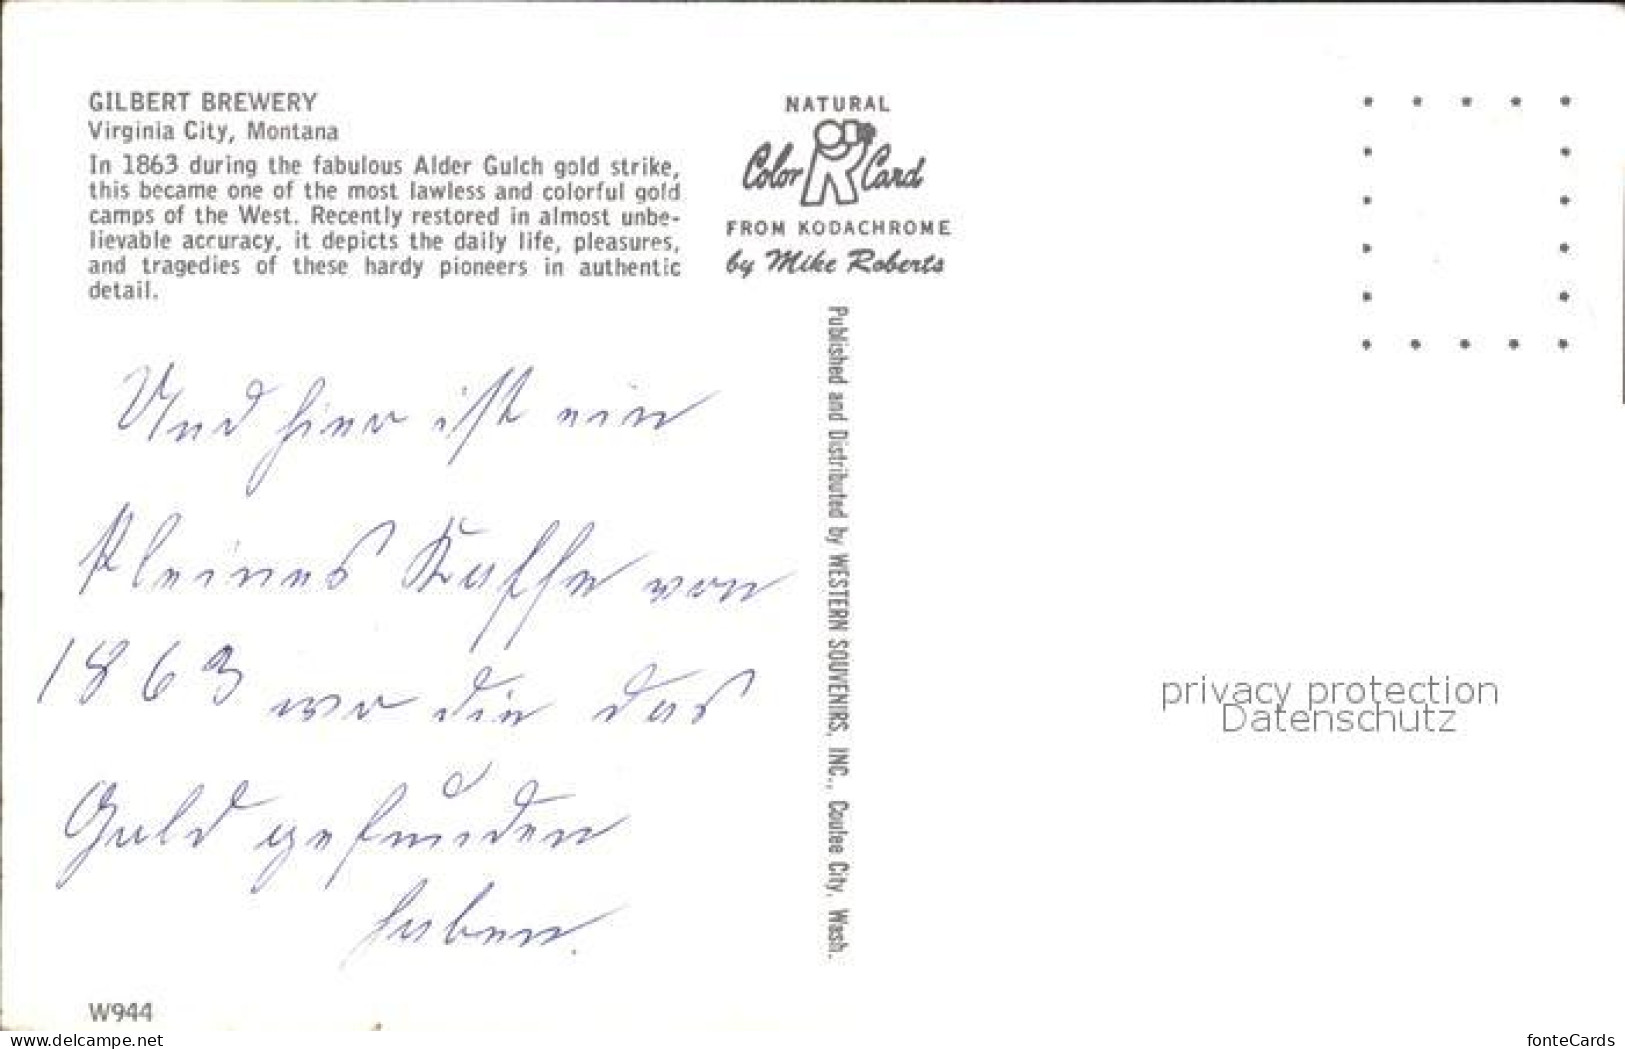 GILBERT BREWERY
Virginia City, Montana
In 1863 during the fabulous Alder Gulch gold strike,
this became one of the most lawless and colorful gold
camps of the West. Recently restored in almost unbe-
lievable accuracy, it depicts the daily life, pleasures,
and tragedies of these hardy pioneers in authentic
detail.
NATURAL
Color Card
FROM KODACHROME
by Mike Roberts
Published and Distributed by WESTERN SOUVENIRS, INC., Coulee City, Wash.
Und hier ist ein
kleines Kaffe von
1863 wo die das
Gold gefunden
haben.
privacy protection
Datenschutz
W944
www.delcampe.net
fonteCards